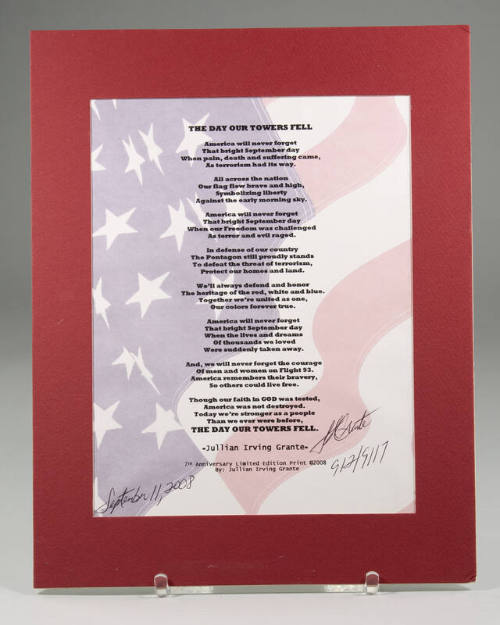 THE DAY OUR TOWERS FELL
America will never forget
That bright September day
When pain, death and suffering came,
As terrorism had its way.
All across the nation
Our flag flew brave and high,
Symbolizing liberty
Against the early morning sky.
America will never forget
That bright September day
When our Freedom was challenged
As terror and evil raged.
In defense of our country
The Pentagon still proudly stands
To defeat the threat of terrorism,
Protect our homes and land.
We'll always defend and honor
The heritage of the red, white and blue.
Together we're united as one,
Our colors forever true.
America will never forget
That bright September day
When the lives and dreams
Of thousands we loved
Were suddenly taken away.
And, we will never forget the courage
Of men and women on Flight 93.
America remembers their bravery,
So others could live free.
Though our faith in GOD was tested,
America was not destroyed.
Today we're stronger as a people
Than we ever were before,
THE DAY OUR TOWERS FELL.
-Jullian Irving Grante-
7th Anniversary Limited Edition Print ©2008
By: Jullian Irving Grante
September 11, 2008